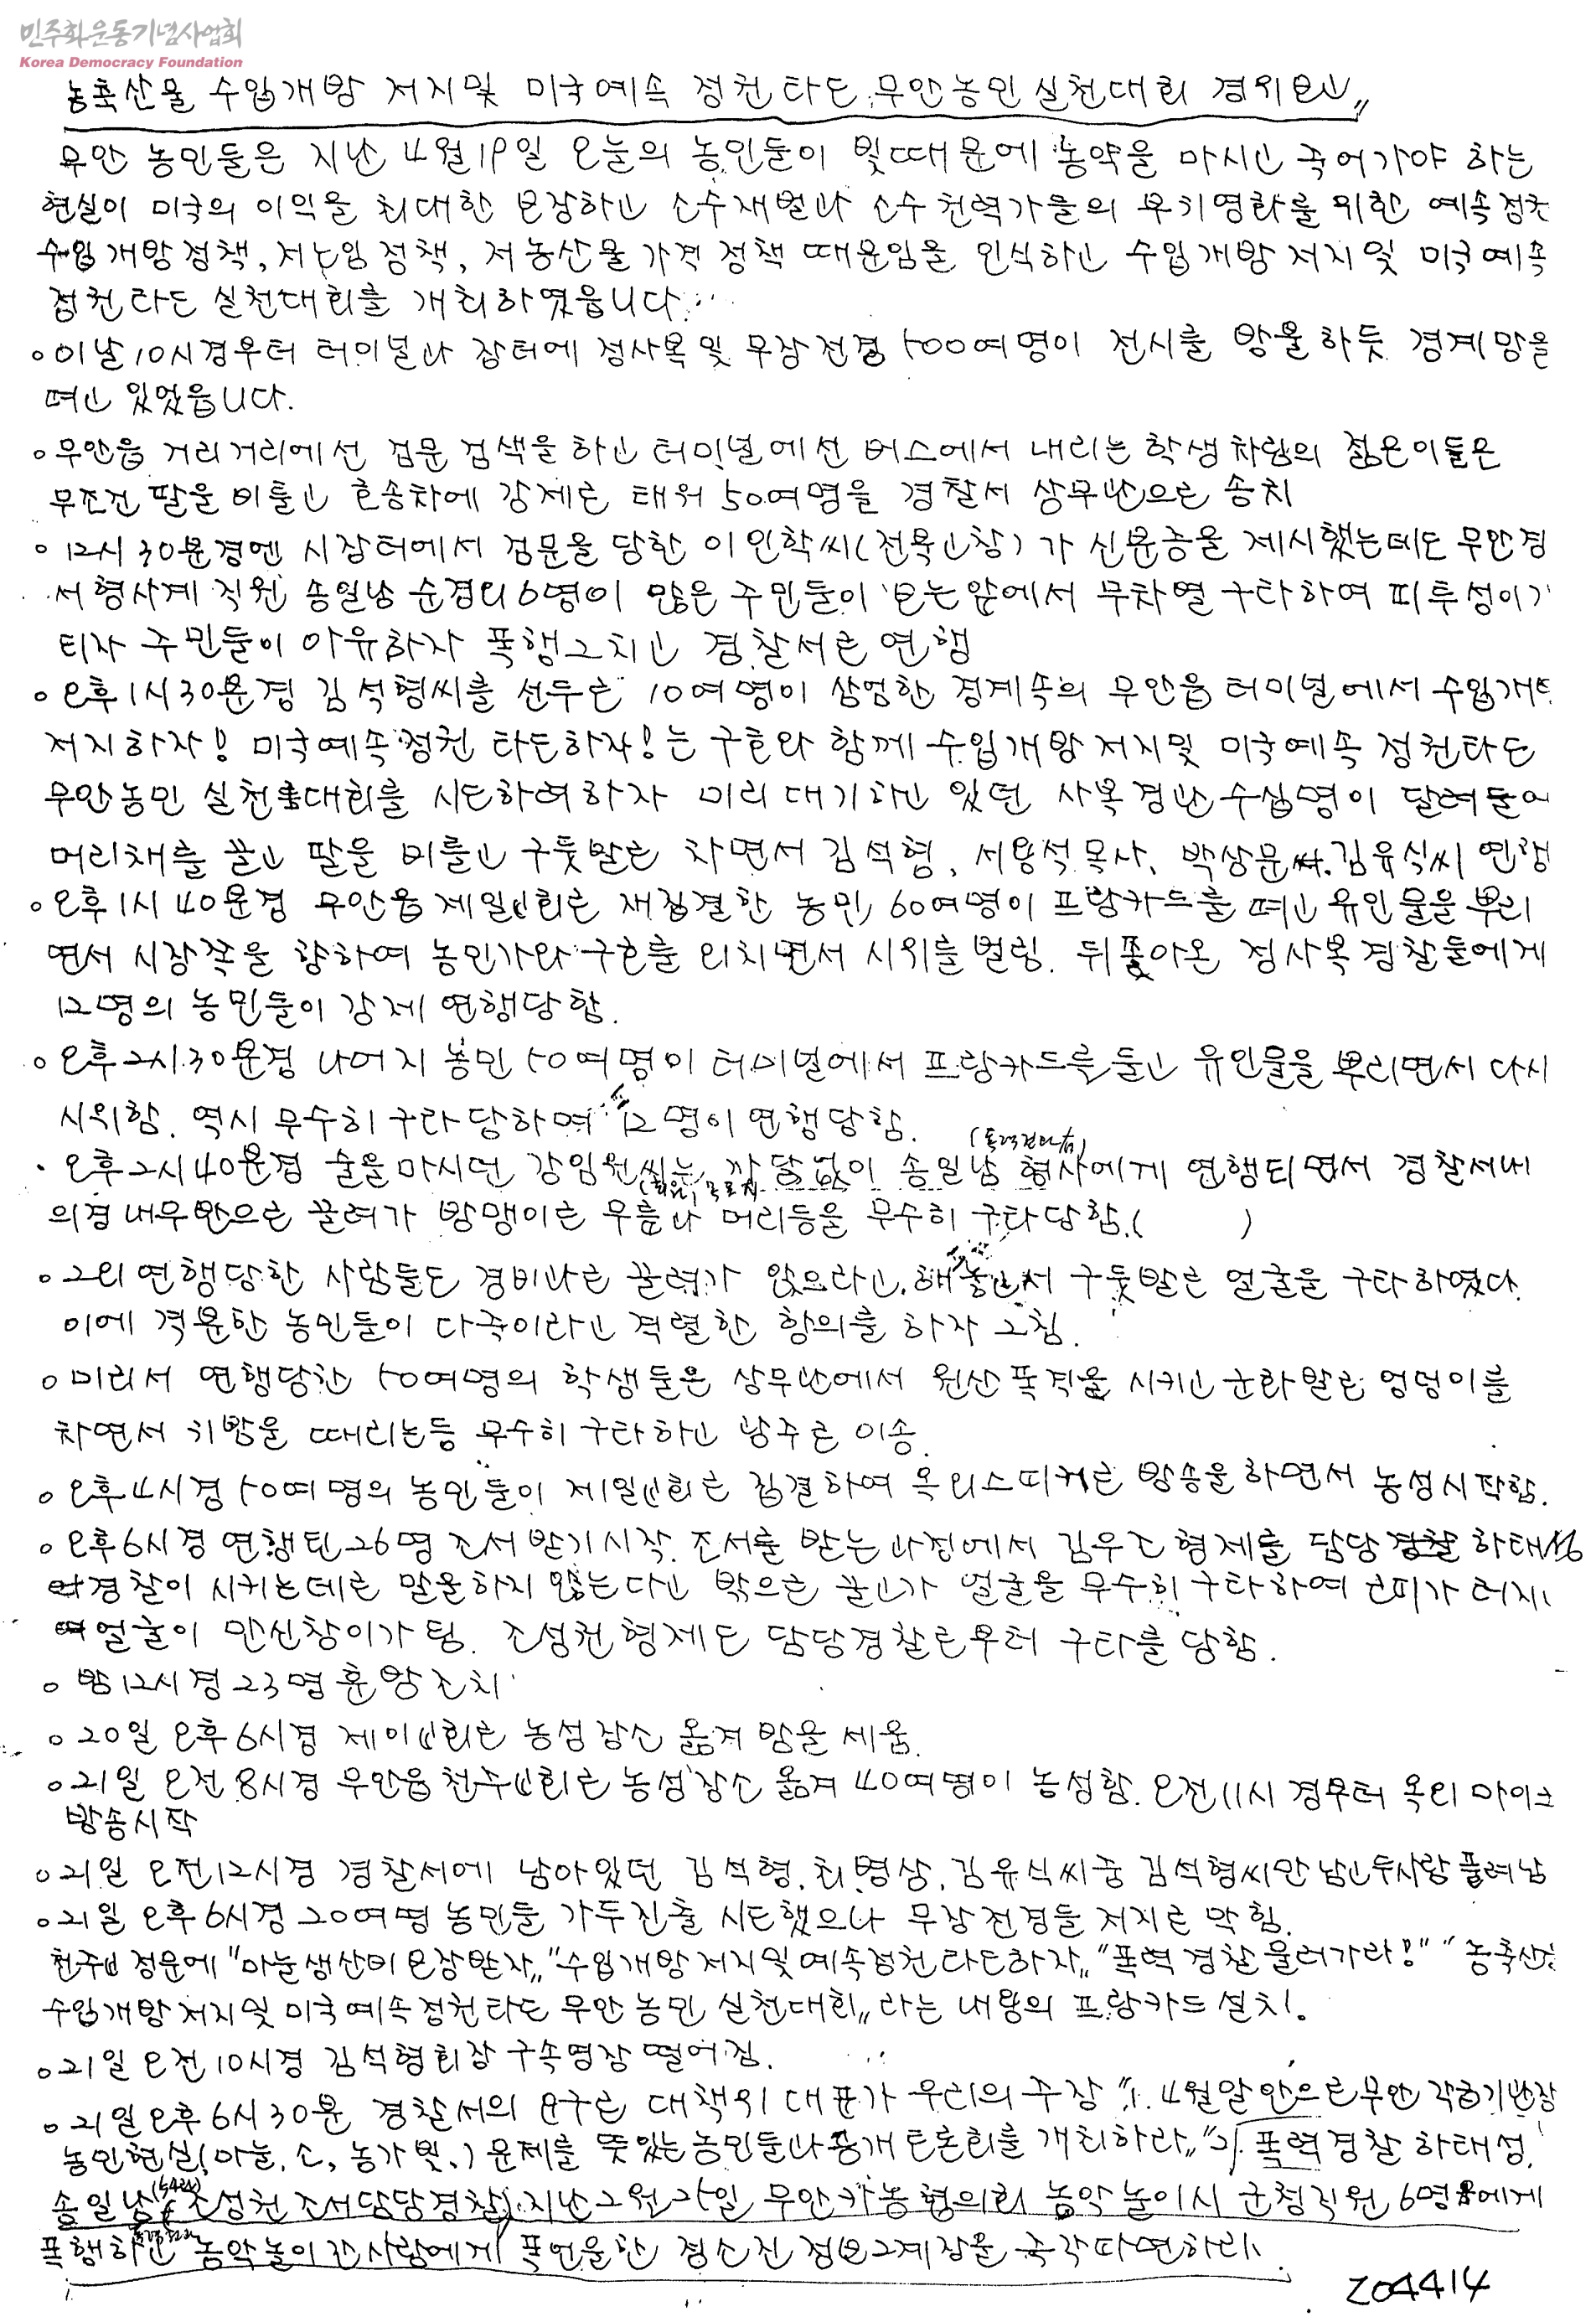 민주화운동기념사업회
Korea Democracy Foundation
농축산물 수입개방 저지및 미국예속 정권타도 무안농민실천대회 경위보고"
무안 농민들은 지난 4월19일 오늘의 농민들이 빚때문에 농약을 마시고 죽어가야 하는
현실이 미국의 이익을 최대한 보장하고 소수재벌과 소수권력가들의 부귀영화를 위한 예속정권
수입개방정책, 저노임정책, 저농산물가격 정책 때문임을 인식하고 수입개방저지및 미국예속
정권타도 실천대회를 개최하였읍니다.
○이날10시경부터 터미널과 장터에 정사복및 무장전경 500여명이 전시를 방불하듯 경계망을
펴고 있었읍니다.
○무안읍 거리거리에선 검문검색을 하고 터미널에선 버스에서 내리는 학생차림의 젊은이들은
무조건 팔을 비틀고 호송차에 강제로 태워 50여명을 경찰서 상무관으로 송치
○12시30분경엔 시장터에서 검문을 당한 이인학씨(전북고창)가 신분증을 제시했는데도 무안경
서형사계 직원 송일남 순경외6명이 많은 주민들이 보는앞에서 무차별구타하여 피투성이가
되자 주민들이 야유하자 폭행그치고 경찰서로 연행
○오후1시30분경 김석형씨를 선두로 10여명이 삼엄한 경계속의 무안읍터미널에서 수입개방
저지하자! 미국예속정권 타도하자!는 구호와 함께 수입개방저지및 미국예속 정권타도
무안농민 실천대회를 시도하려하자 미리 대기하고 있던 사복경관수십명이 달려들어
머리채를 끌고 팔을 비틀고 구둣발로 차면서 김석형, 서용석목사, 박상문, 김유식씨 연행
○오후1시40분경 무안읍제일교회로 재집결한 농민 60여명이 프랑카드를 펴고 유인물을 뿌리
면서 시장쪽을 향하여 농민가와 구호를 외치면서 시위를 벌림. 뒤쫓아온 정사복경찰들에게
12명의 농민들이 강제 연행당함.
○오후2시30분경 나머지 농민50여명이 터미널에서 프랑카드를 들고 유인물을 뿌리면서 다시
시위함. 역시 무수히 구타당하며 12명이 연행당함.
·오후2시40분경 술을마시던 강임원씨는 까닭없이 송일남 형사에게 연행되면서 경찰서내
의경내무반으로 끌려가 방맹이로 무릎과 머리등을 무수히 구타당함.( )
○그외 연행당한 사람들도 경비과로 끌려가 앉으라고 해놓고서 구둣발로 얼굴을 구타하였다.
이에 격분한 농민들이 다죽이라고 격렬한 항의를 하자 그침.
○미리서 연행당한 50여명의 학생들은 상무관에서 원산폭격을 시키고 군화발로 엉덩이를
차면서 귀밥을 때리는등 무수히 구타하고 광주로 이송
○오후4시경 50여명의 농민들이 제일교회로 집결하여 옥외스피커로 방송을하면서 농성시작함.
○오후6시경 연행된26명 조서받기시작. 조서를 받는과정에서 김우조형제를 담당경찰 하태성
경찰이 시키는데로 말을하지 않는다고 밖으로 끌고가 얼굴을 무수히 구타하여 코피가 터지
며얼굴이 만신창이가 됨. 조성권형제도 담당경찰로부터 구타를 당함.
○밤12시경23명훈방조치
○20일 오후6시경 제이교회로 농성장소 옮겨 밤을 세움.
○21일 오전8시경 무안읍천주교회로 농성장소 옮겨 40여명이 농성함. 오전11시경부터 옥외마이크
방송시작
○21일 오전12시경 경찰서에 남아있던 김석형, 최병상, 김유식씨중 김석형씨만 남고두사람풀려남
○21일 오후6시경 20여명 농민들 가두진출 시도했으나 무장전경들 저지로 막힘.
천주교정문에 "마늘생산비보장받자" "수입개방저지및예속정권타도하자" "폭력경찰물러가라!" "농축산물
수입개방저지및 미국예속정권타도 무안농민 실천대회"라는 내용의 프랑카드설치.
○21일 오전10시경 김석형회장 구속영장 떨어짐.
○21일오후6시30분 경찰서의 요구로 대책위 대표가 우리의 주장 "1. 4월말안으로무안 각급기관장
농민현실(마늘, 소, 농가빚,) 문제를 뜻있는농민들과공개토론회를 개최하라" 2) 폭력경찰 하태성,
송일남 조성권조서담당경찰 지난2월21일 무안카농협의회 농악놀이시 군청직원6명에게
폭행하고 농악놀이간사람에게 폭언을한 정보2계장을 즉각파면하라
204414